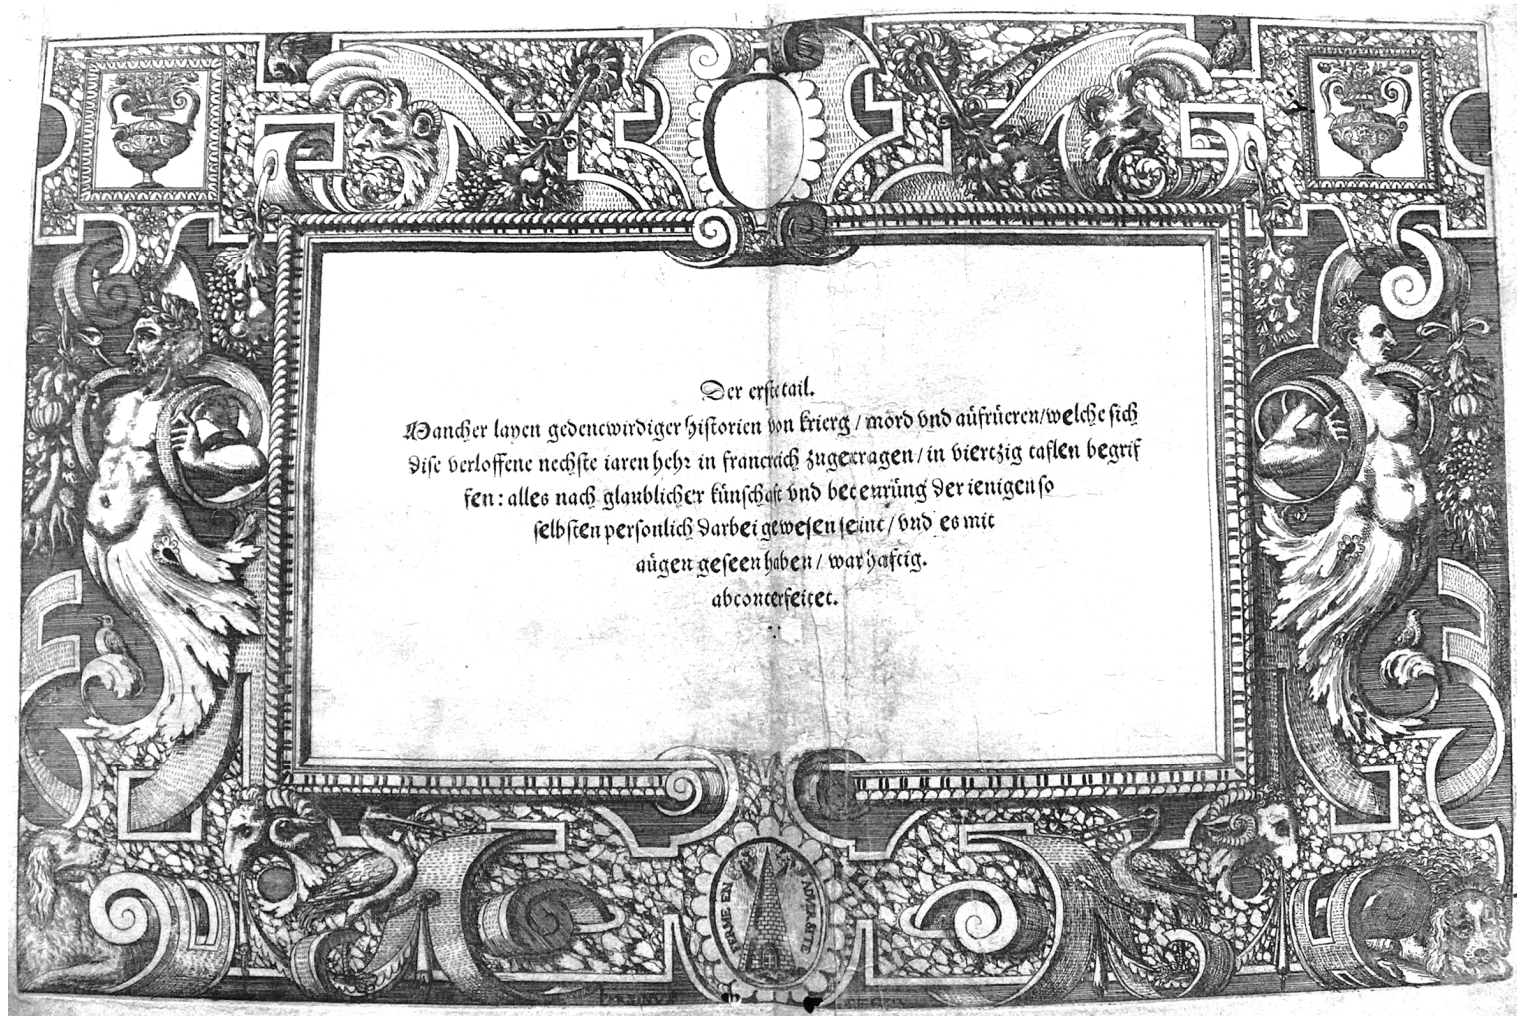 Der erste tail.
Mancher layen gedencwirdiger historien von krierg / mord vnd aüfrüeren / welche sich
dise verloffene nechste iaren hehr in franckreich zugetragen / in viertzig taflen begrif
fen : alles nach glaublicher künschaft vnd beteurüng der ienigen so
selbsten personlich darbei gewesen seint / vnd es mit
aügen geseen haben / warhaftig.
abconterfeitet.